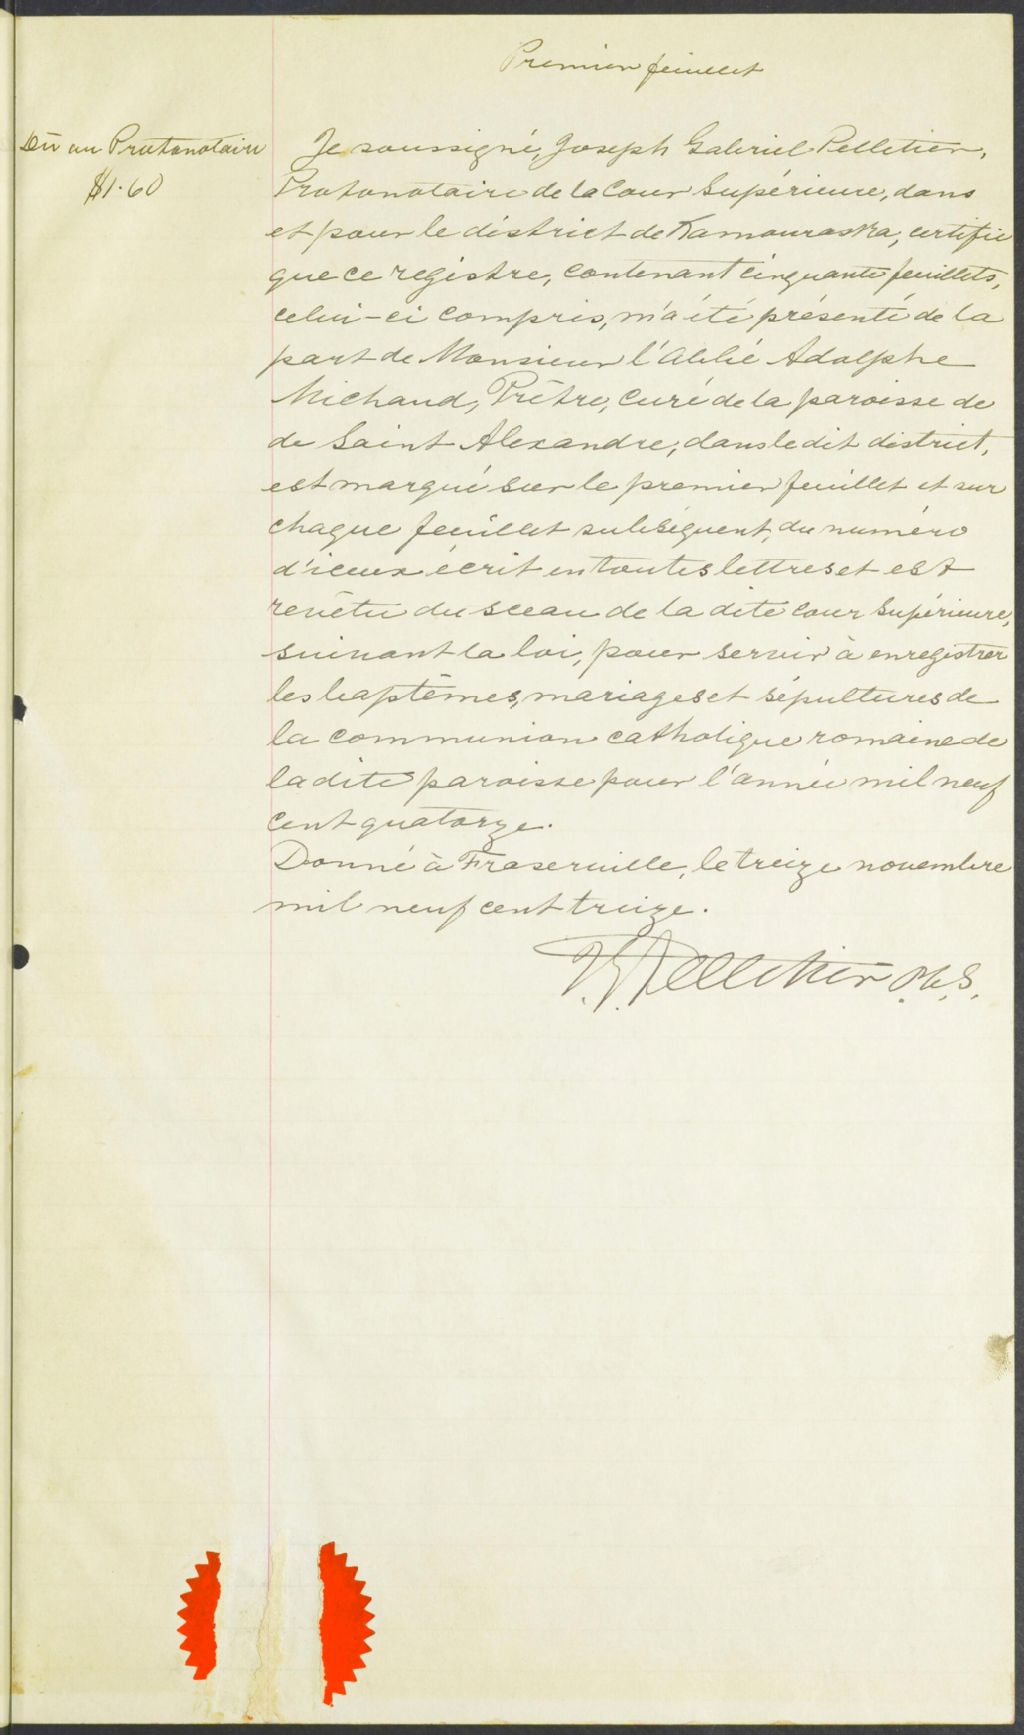 Premier feuillet
Dû au Protonotaire
$1.60
Je soussigné, Joseph Gabriel Pelletier,
Protonotaire de la Cour Supérieure, dans
et pour le district de Kamouraska, certifie
que ce registre, contenant cinquante feuillets,
celui-ci compris, m'a été présenté de la
part de Monsieur l'Abbé Adolphe
Michaud, Prêtre, Curé de la paroisse de
de Saint Alexandre, dans le dit district,
est marqué sur le premier feuillet et sur
chaque feuillet subséquent, du numéro
d'iceux écrit en toutes lettres et est
revêtu du sceau de la dite Cour Supérieure,
suivant la loi, pour servir à enregistrer
les baptêmes, mariages et sépultures de
la communion catholique romaine de
la dite paroisse pour l'année mil neuf
cent quatorze.
Donné à Fraserville, le treize novembre
mil neuf cent treize.
J. G. Pelletier P.C.S.